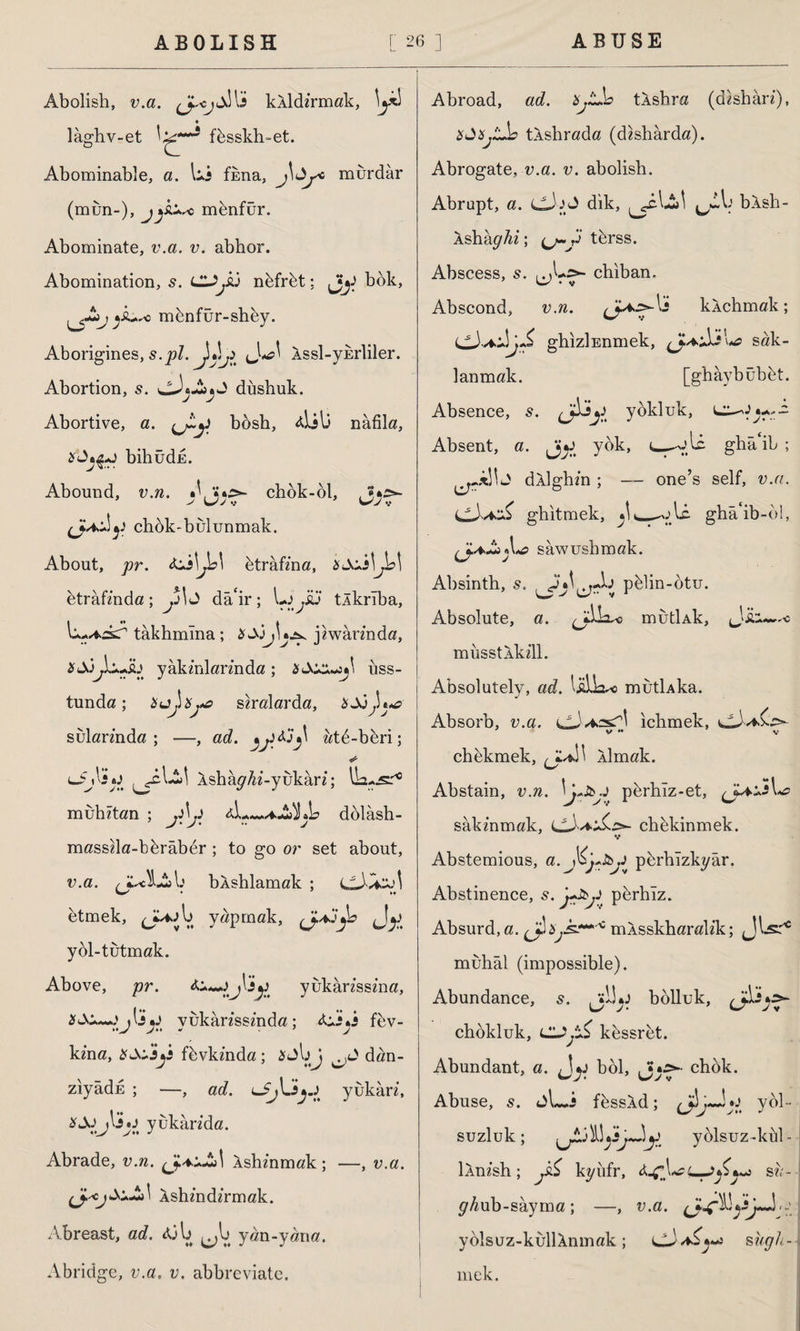 ABOLISH [ 26 ] ABUSE
Abolish, v.a. قالديرمق kƛldirmak, لغوا
làghv-et فسخ fèsskh-et.
Abominable, a. فنا fɛna, مردار murdàr
(mùn-), منفور mènfūr.
Abominate, v.a. v. abhor.
Abomination, s. نفرت nèfrèt; بوق bòk,
منفور شى mènfūr-shèy.
Aborigines, s.pl. اصل يرليلر ƛssl-yɛrliler.
Abortion, s. دوشوك dùshuk.
Abortive, a. بوش bòsh, نافله nàfila,
بيهوده bihūdɛ.
Abound, v.n. چوق اول chòk-òl, چوق
بولنمق chòk-bùlunmak.
About, pr. اطرافنه ètràfina, اطرافنده
ètràfinda; دائر dā‘ir; تقريبا tƛkrība,
تخمينا tàkhmīna; جوارنده jiwàrinda,
يقينلرنده yàkinlarinda; اوستنده ùss-
tunda; صره‌لرده siralarda, صولرنده
sùlarinda; —, ad. اوته‌بيرى ùté-bèri;
اشاغى يوقارى ƛshàghi-yùkàri; محيطا
muhītan; طولاشمسيله برابر dòlàsh-
massila-bèrābér; to go or set about,
v.a. باشلامق bƛshlamak; ايتمك
ètmek, ياپمق yàpmak, يول طوتمق
yòl-tùtmak.
Above, pr. يوقاريسنه yùkàrissina,
يوقاريسنده yùkàrissinda; فوقنه fèv-
kina, فوقنده fèvkinda; دن زياده dàn-
zìyādɛ; —, ad. يوقارى yùkàri,
يوقاريده yùkàrida.
Abrade, v.n. اشنمق ƛshinmak; —, v.a.
اشنديرمق ƛshindirmak.
Abreast, ad. يان يانه yàn-yàna.
Abridge, v.a. v. abbreviate.
Abroad, ad. طشره tƛshra (dishàri),
طشره‌ده tƛshrada (dishàrda).
Abrogate, v.a. v. abolish.
Abrupt, a. ديك dìk, باش اشاغى bƛsh-
ƛshàghi; ترس tèrss.
Abscess, s. چبان chìban.
Abscond, v.n. قاچمق kƛchmak;
كزلنمك ghìzlɛnmek, صاقلانمق sàk-
lanmak. [ghàybūbèt.
Absence, s. يوقلق yòkluk, غيبوبت
Absent, a. يوق yòk, غائب ghā‘ib;
دالغين dƛlghin; — one’s self, v.a.
كتمك ghìtmek, غائب اول ghā‘ib-òl,
صاوشمق sàwushmak.
Absinth, s. پلين اوتى pèlin-òtu.
Absolute, a. مطلق mùtlƛk, مستقل
mùsstƛkill.
Absolutely, ad. مطلقا mùtlƛka.
Absorb, v.a. ايچمك ìchmek, چكمك
chèkmek, المق ƛlmak.
Abstain, v.n. پرهيزا pèrhīz-et, صاقنمق
sàkinmak, چكنمك chèkinmek.
Abstemious, a. پرهيزكار pèrhīzkyār.
Abstinence, s. پرهيز pèrhīz.
Absurd, a. مسخره‌لق mƛsskharalik; محال
muhāl (impossible).
Abundance, s. بوللق bòlluk, چوقلق
chòkluk, كثرت kèssret.
Abundant, a. بول bòl, چوق chòk.
Abuse, s. فساد fèssƛd; يولسزلق yòl-
suzluk; يولسزقوللانش yòlsuz-kùl-
lƛnish; كفر kyùfr, سوكوب صايمه sù-
ghub-sàyma; —, v.a. يولسزقوللانمق
yòlsuz-kùllƛnmak; سوكمك sùgh-
mek.